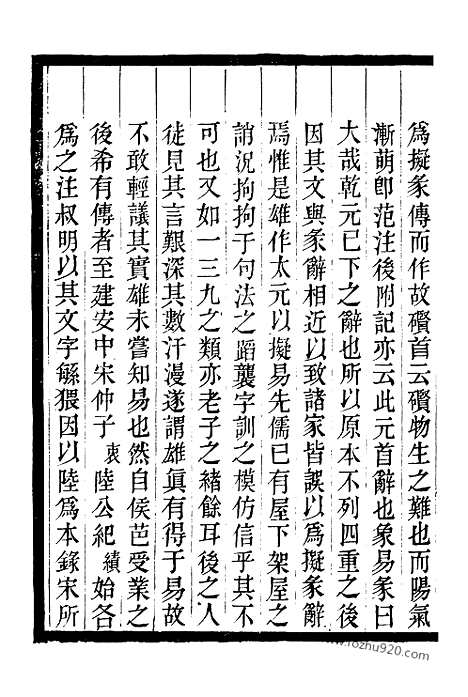 爲擬彖傳而作故礥首云礥物生之難也而陽氣
漸萌卽范注後附記亦云此元首辭也象易彖曰
大哉乾元已下之辭也所以原本不列四重之後
因其文與彖辭相近以致諸家皆誤以爲擬彖辭
焉惟是雄作太元以擬易先儒已有屋下架屋之
誚況拘拘于句法之蹈襲字訓之模仿信乎其不
可也又如一三九之類亦老子之緒餘耳後之人
徒見其言艱深其數汗漫遂謂雄眞有得于易故
不敢輕議其實雄未嘗知易也然自侯芭受業之
後希有傳者至建安中宋仲子衷陸公紀績始各
爲之注叔明以其文字繇猥因以陸爲本錄宋所
www.fozhu920.com